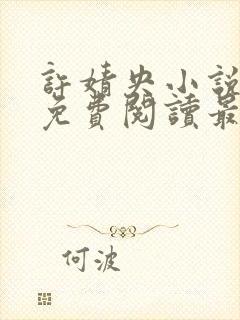 許婧央小說
免費閱讀最
何波